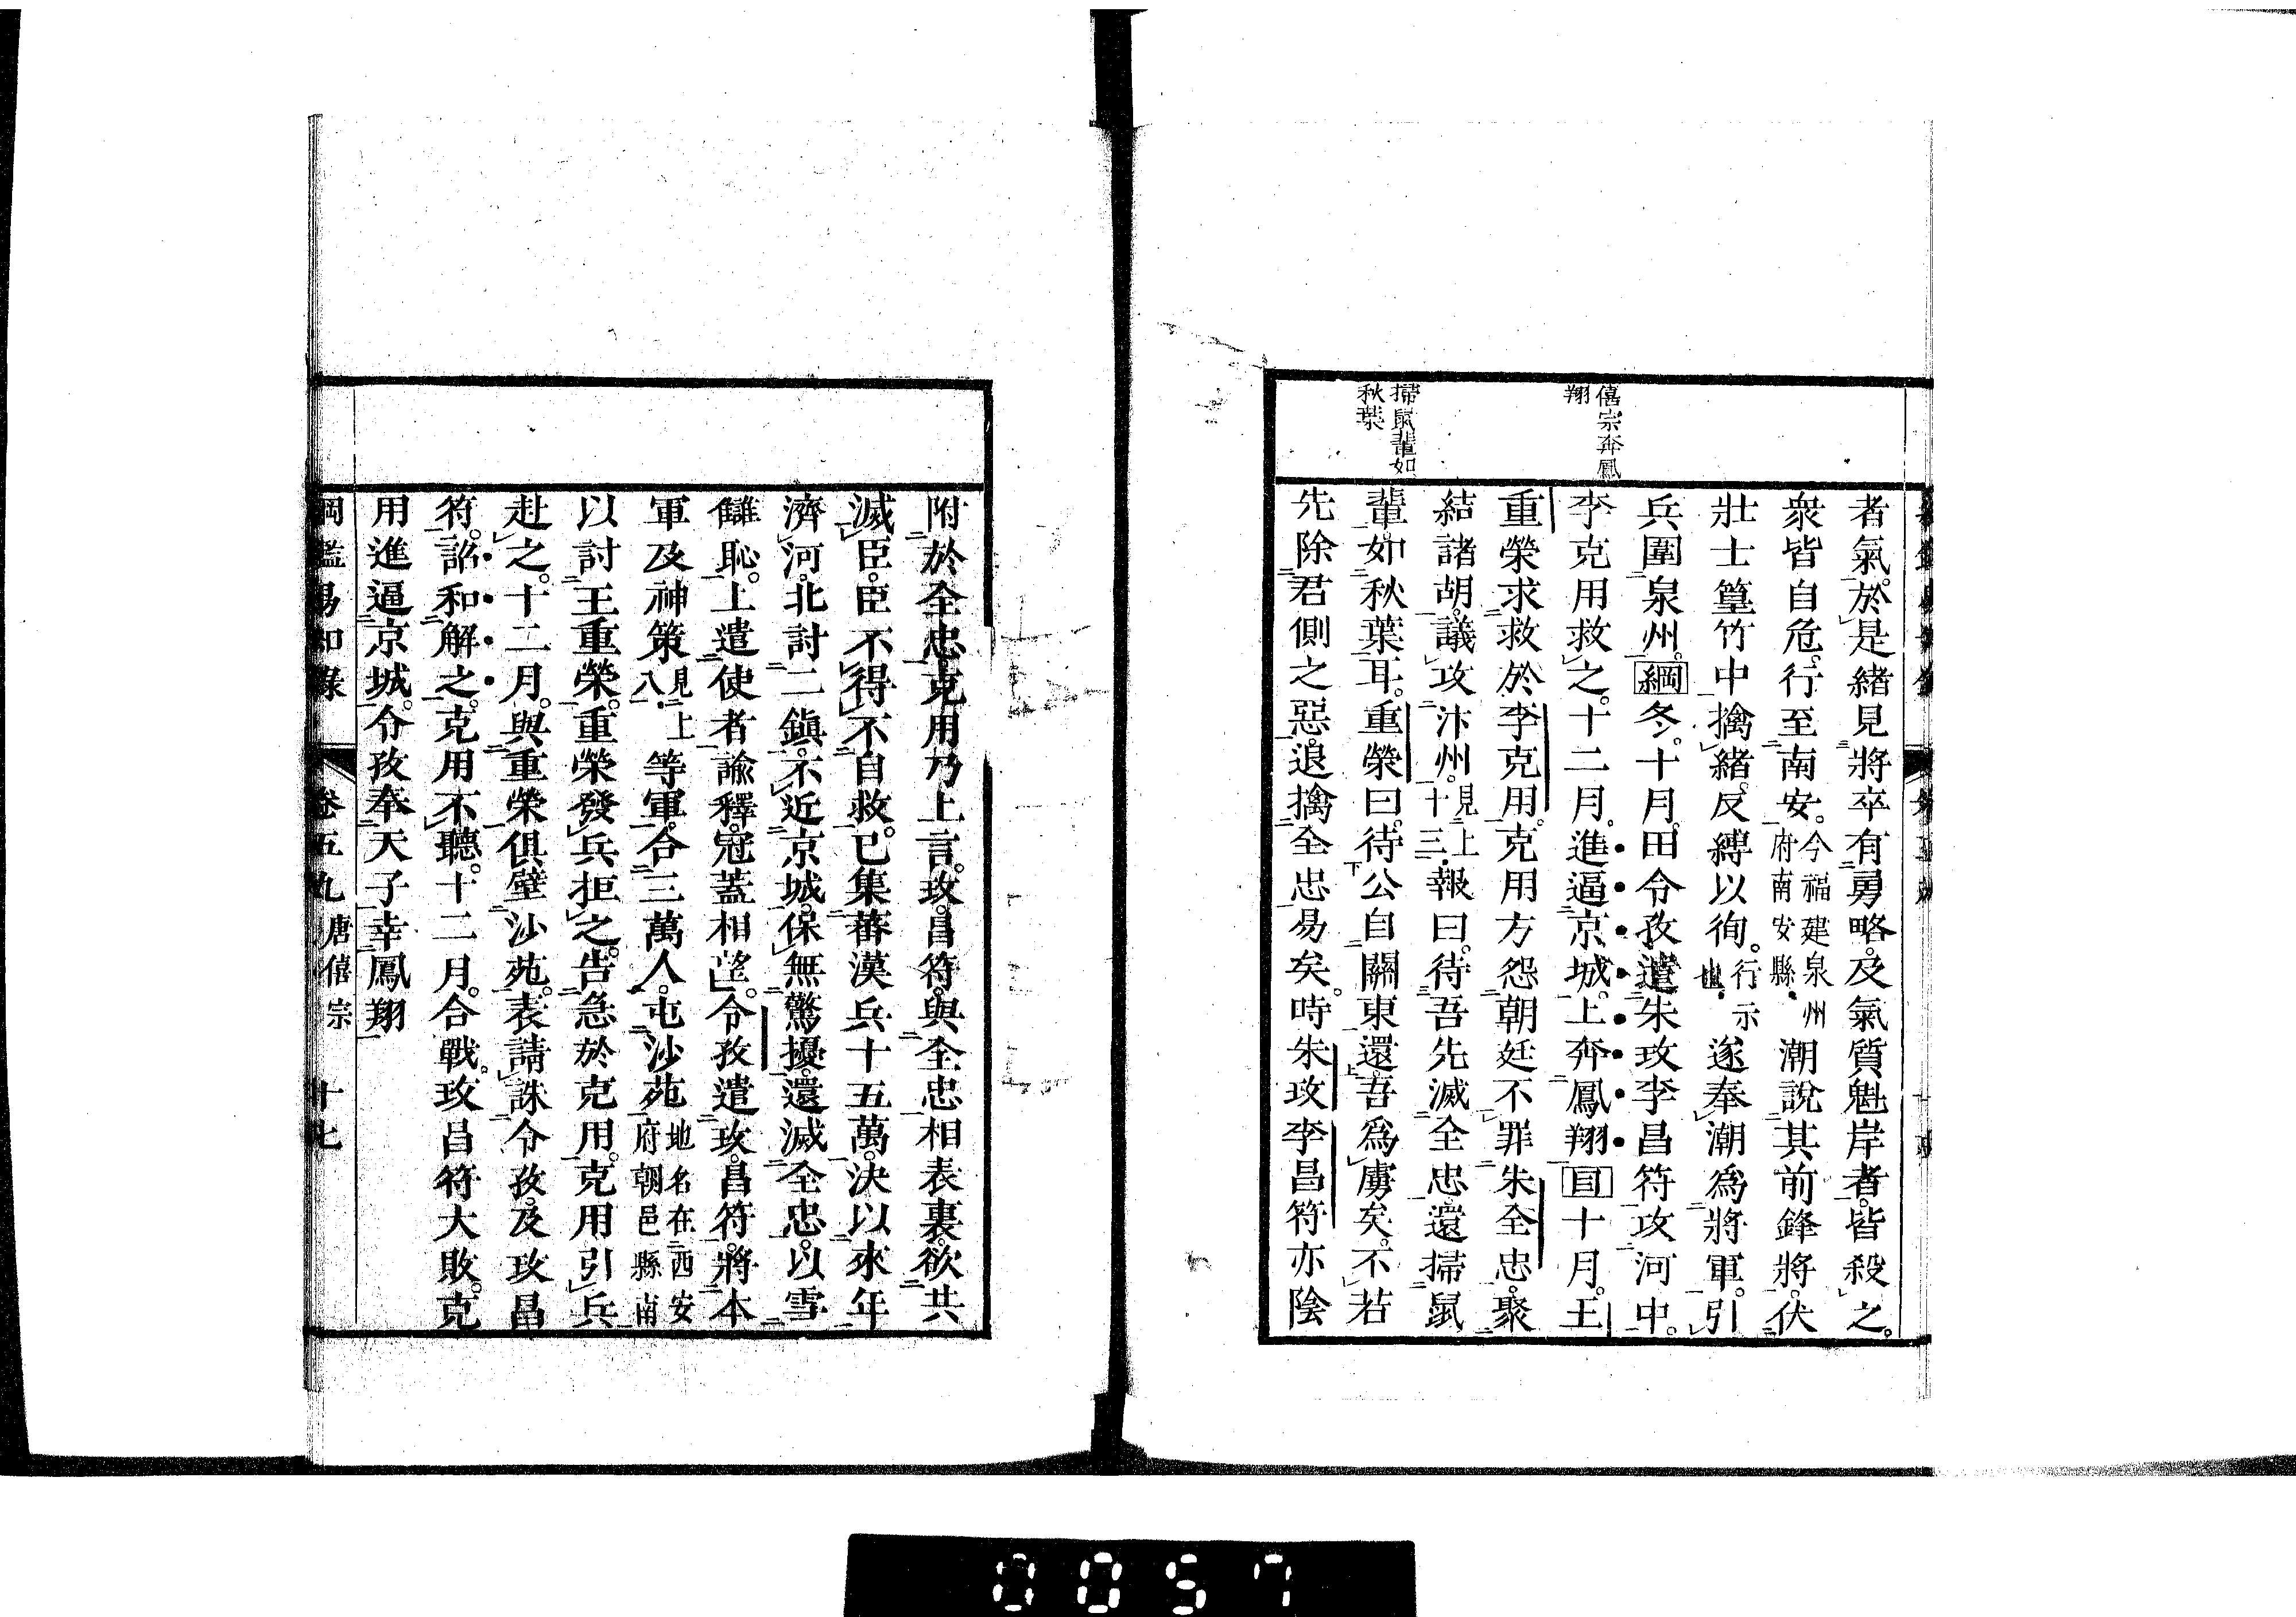 僖宗奔鳳
翔
掃鼠輩如
秋葉
者氣。於是緒見將卒有勇略。及氣質魁岸者。皆殺之。
衆皆自危。行至南安。今福建泉州府南安縣。潮說其前鋒將。伏
壯士篁竹中擒緒。反縛以徇。行示也。遂奉潮爲將軍。引
兵圍泉州。綱冬。十月。田令孜遣朱玫李昌符攻河中。
李克用救之。十二月。進逼京城。上奔鳳翔目十月。王
重榮求救於李克用。克用方怨朝廷不罪朱全忠。聚
結諸胡。議攻汴州。見上十三。報曰。待吾先滅全忠。還掃鼠
輩。如秋葉耳。重榮曰。待公自關東還。吾爲虜矣。不若
先除君側之惡。退擒全忠易矣。時朱玫李昌符亦陰
附於全忠。克用乃上言。玫昌符。與全忠相表裏。欲共
滅臣。臣不得不自救。已集蕃漢兵十五萬。決以來年
濟河。北討二鎭。不近京城。保無驚擾。還滅全忠。以雪
讎恥。上遣使者諭釋。冠蓋相望。令孜遣玫昌符。將本
軍及神策見上八。等軍。合三萬人。屯沙苑地名在西安府朝邑縣南
以討王重榮。重榮發兵拒之。告急於克用。克用引兵
赴之。十二月。與重榮俱壁沙苑。表請誅令孜。及玫昌
符。詔和解之。克用不聽。十二月。合戰。玫昌符大敗。克
用進逼京城。令孜奉天子幸鳳翔
綱鑑易知錄 卷五九 唐僖宗 十七
0057